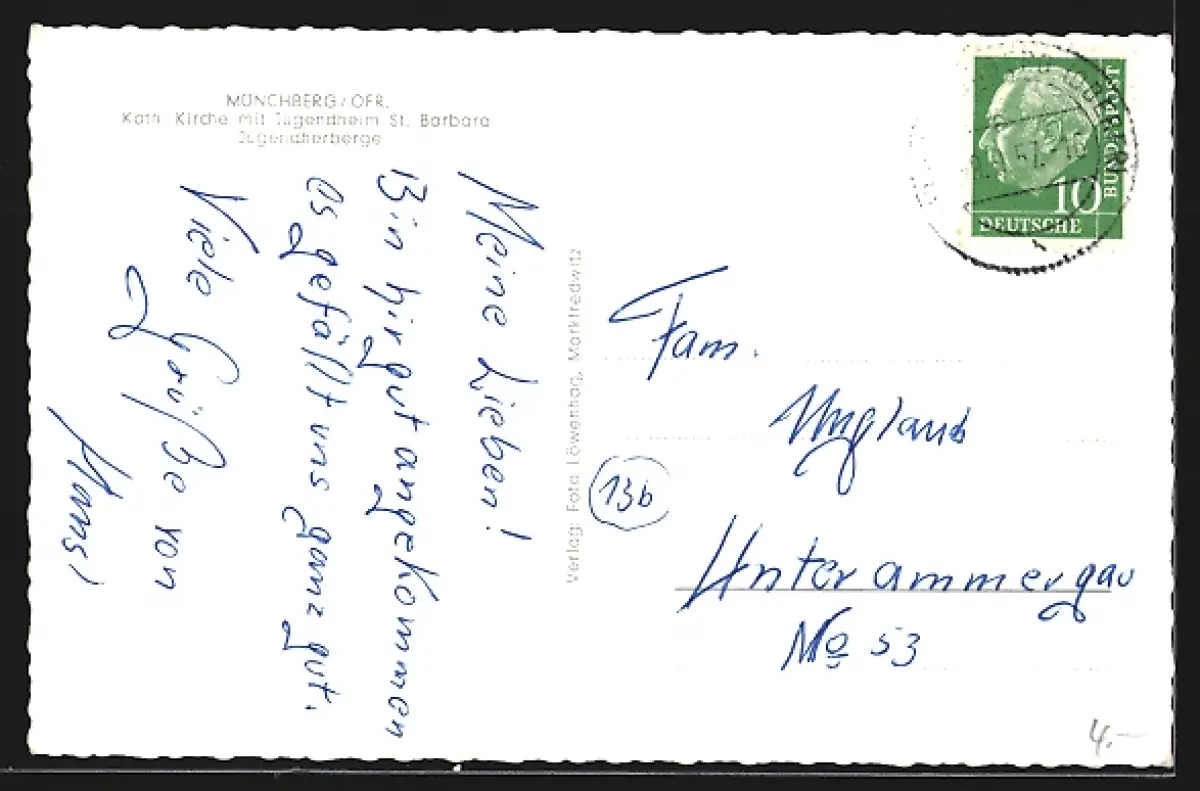 MÜNCHBERG/OFR.
Kath. Kirche mit Jugendheim St. Barbara
Jugendherberge
Meine Lieben!
Bin hir gut angekommen
es gefällt uns ganz gut.
Viele Grüße von
Hans
Verlag: Foto Löwenhag, Marktredwitz
DEUTSCHE
BUNDESPOST
10
Fam.
13b
Unterammergau
No 53
4.-